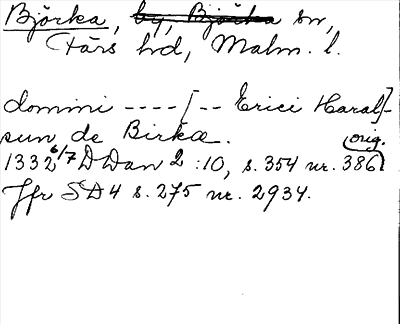 Björka, by, Björka sn,
Färs hd, Malm. l.
domini ---- [-- Erici Haral]-
sun de Birkæ.
1332 6/7 DDan 2:10, s. 354 nr. 386 orig.
Jfr SD4 s. 275 nr. 2934.